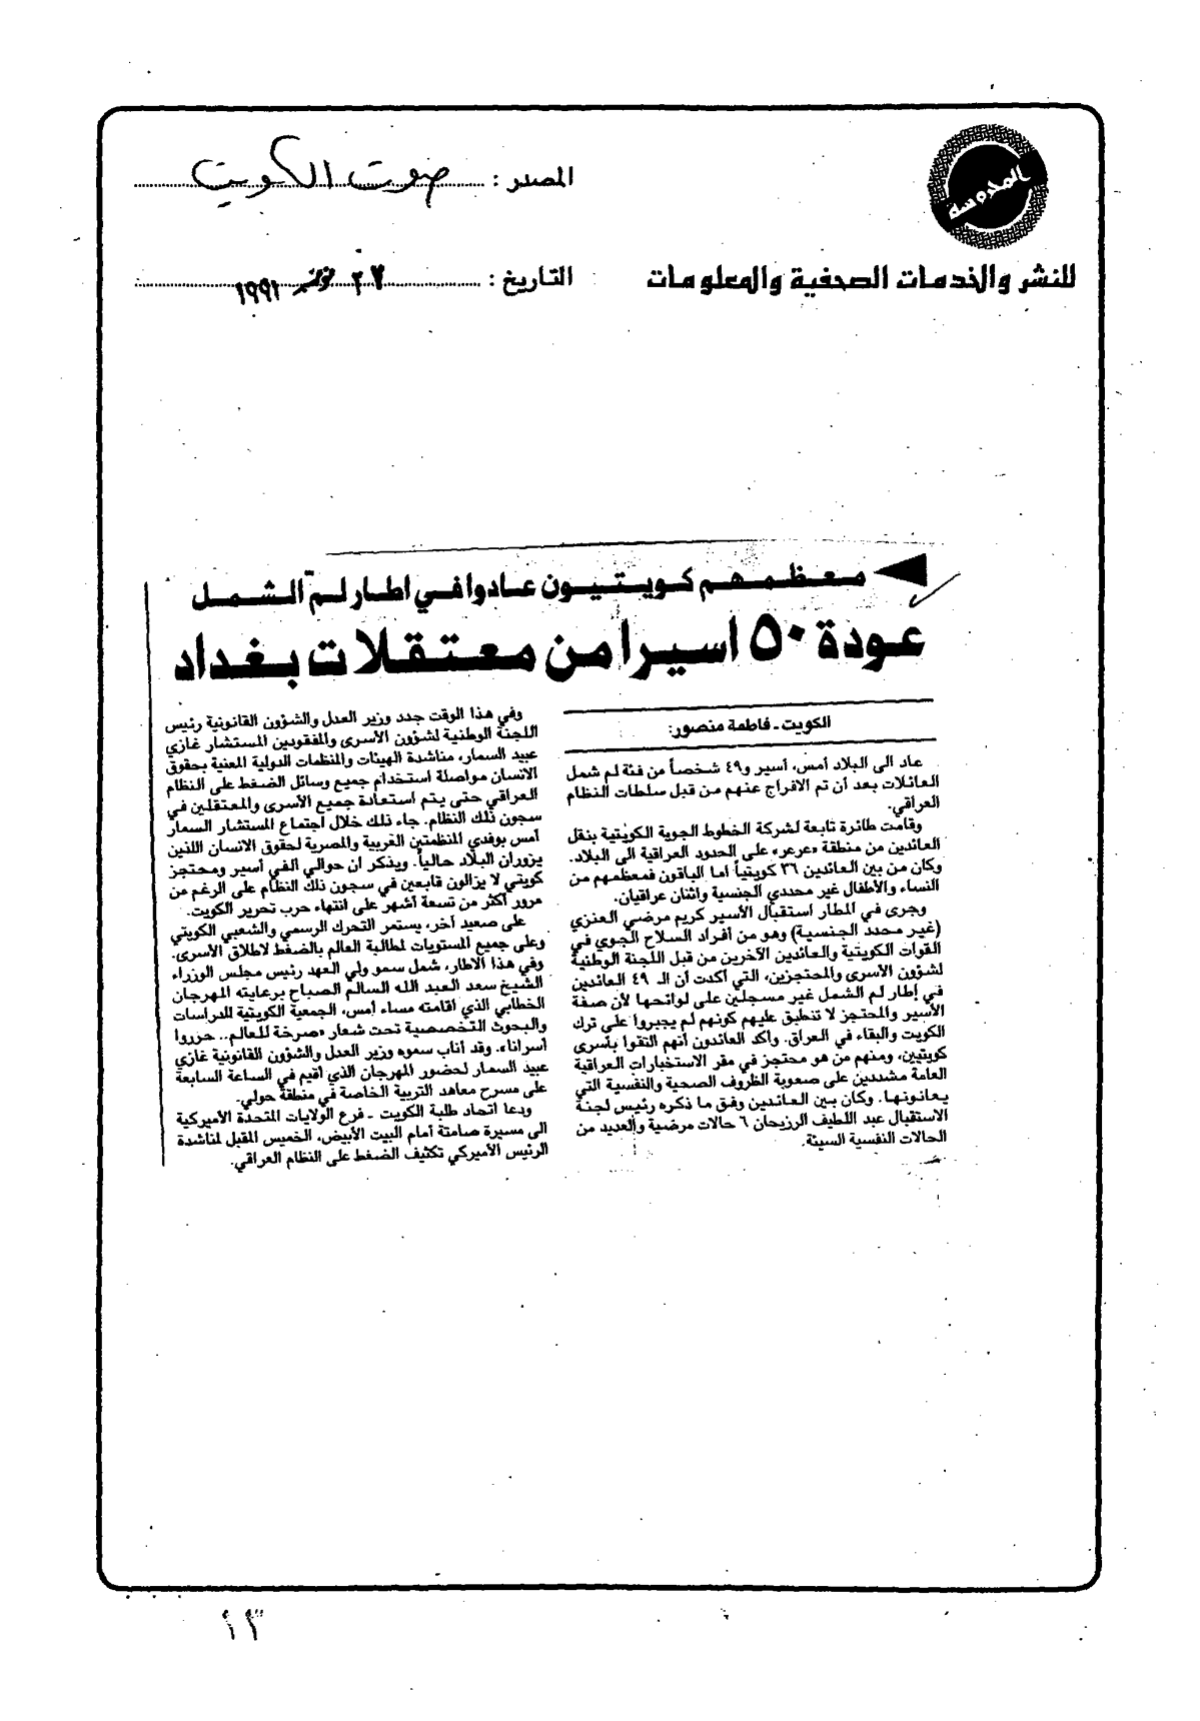 المحروسة
للنشر والخدمات الصحفية والمعلومات
المصدر : صوت الكويت
التاريخ : ٢٧ نوفمبر ١٩٩١
معظمهم كويتيون عادوا في اطار لمّ الشمل
عودة ٥٠ اسيرا من معتقلات بغداد
الكويت ـ فاطمة منصور:
عاد الى البلاد أمس، أسير و٤٩ شخصاً من فئة لم شمل
العائلات بعد أن تم الافراج عنهم من قبل سلطات النظام
العراقي.
وقامت طائرة تابعة لشركة الخطوط الجوية الكويتية بنقل
العائدين من منطقة «عرعر» على الحدود العراقية الى البلاد.
وكان من بين العائدين ٣٦ كويتياً أما الباقون فمعظمهم من
النساء والأطفال غير محددي الجنسية واثنان عراقيان.
وجرى في المطار استقبال الأسير كريم مرضي العنزي
(غير محدد الجنسية) وهو من أفراد السلاح الجوي في
القوات الكويتية والعائدين الآخرين من قبل اللجنة الوطنية
لشؤون الأسرى والمحتجزين، التي أكدت أن الـ ٤٩ العائدين
في إطار لم الشمل غير مسجلين على لوائحها لأن صفة
الأسير والمحتجز لا تنطبق عليهم كونهم لم يجبروا على ترك
الكويت والبقاء في العراق. وأكد العائدون أنهم التقوا بأسرى
كويتيين، ومنهم من هو محتجز في مقر الاستخبارات العراقية
العامة مشددين على صعوبة الظروف الصحية والنفسية التي
يعانونها. وكان بين العائدين وفق ما ذكره رئيس لجنة
الاستقبال عبد اللطيف الرزيحان ٦ حالات مرضية والعديد من
الحالات النفسية السيئة.
وفي هذا الوقت جدد وزير العدل والشؤون القانونية رئيس
اللجنة الوطنية لشؤون الأسرى والمفقودين المستشار غازي
عبيد السمار، مناشدة الهيئات والمنظمات الدولية المعنية بحقوق
الانسان مواصلة استخدام جميع وسائل الضغط على النظام
العراقي حتى يتم استعادة جميع الأسرى والمعتقلين في
سجون ذلك النظام. جاء ذلك خلال اجتماع المستشار السمار
أمس بوفدي المنظمتين العربية والمصرية لحقوق الانسان اللذين
يزوران البلاد حالياً. ويذكر ان حوالي ألفي أسير ومحتجز
كويتي لا يزالون قابعين في سجون ذلك النظام على الرغم من
مرور أكثر من تسعة أشهر على انتهاء حرب تحرير الكويت.
على صعيد آخر، يستمر التحرك الرسمي والشعبي الكويتي
وعلى جميع المستويات لمطالبة العالم بالضغط لاطلاق الأسرى.
وفي هذا الاطار، شمل سمو ولي العهد رئيس مجلس الوزراء
الشيخ سعد العبد الله السالم الصباح برعايته المهرجان
الخطابي الذي اقامته مساء أمس، الجمعية الكويتية للدراسات
والبحوث التخصصية تحت شعار «صرخة للعالم.. حرروا
أسرانا». وقد أناب سموه وزير العدل والشؤون القانونية غازي
عبيد السمار لحضور المهرجان الذي اقيم في الساعة السابعة
على مسرح معاهد التربية الخاصة في منطقة حولي.
ودعا اتحاد طلبة الكويت ـ فرع الولايات المتحدة الأميركية
الى مسيرة صامتة أمام البيت الأبيض، الخميس المقبل لمناشدة
الرئيس الأميركي تكثيف الضغط على النظام العراقي.
١٣